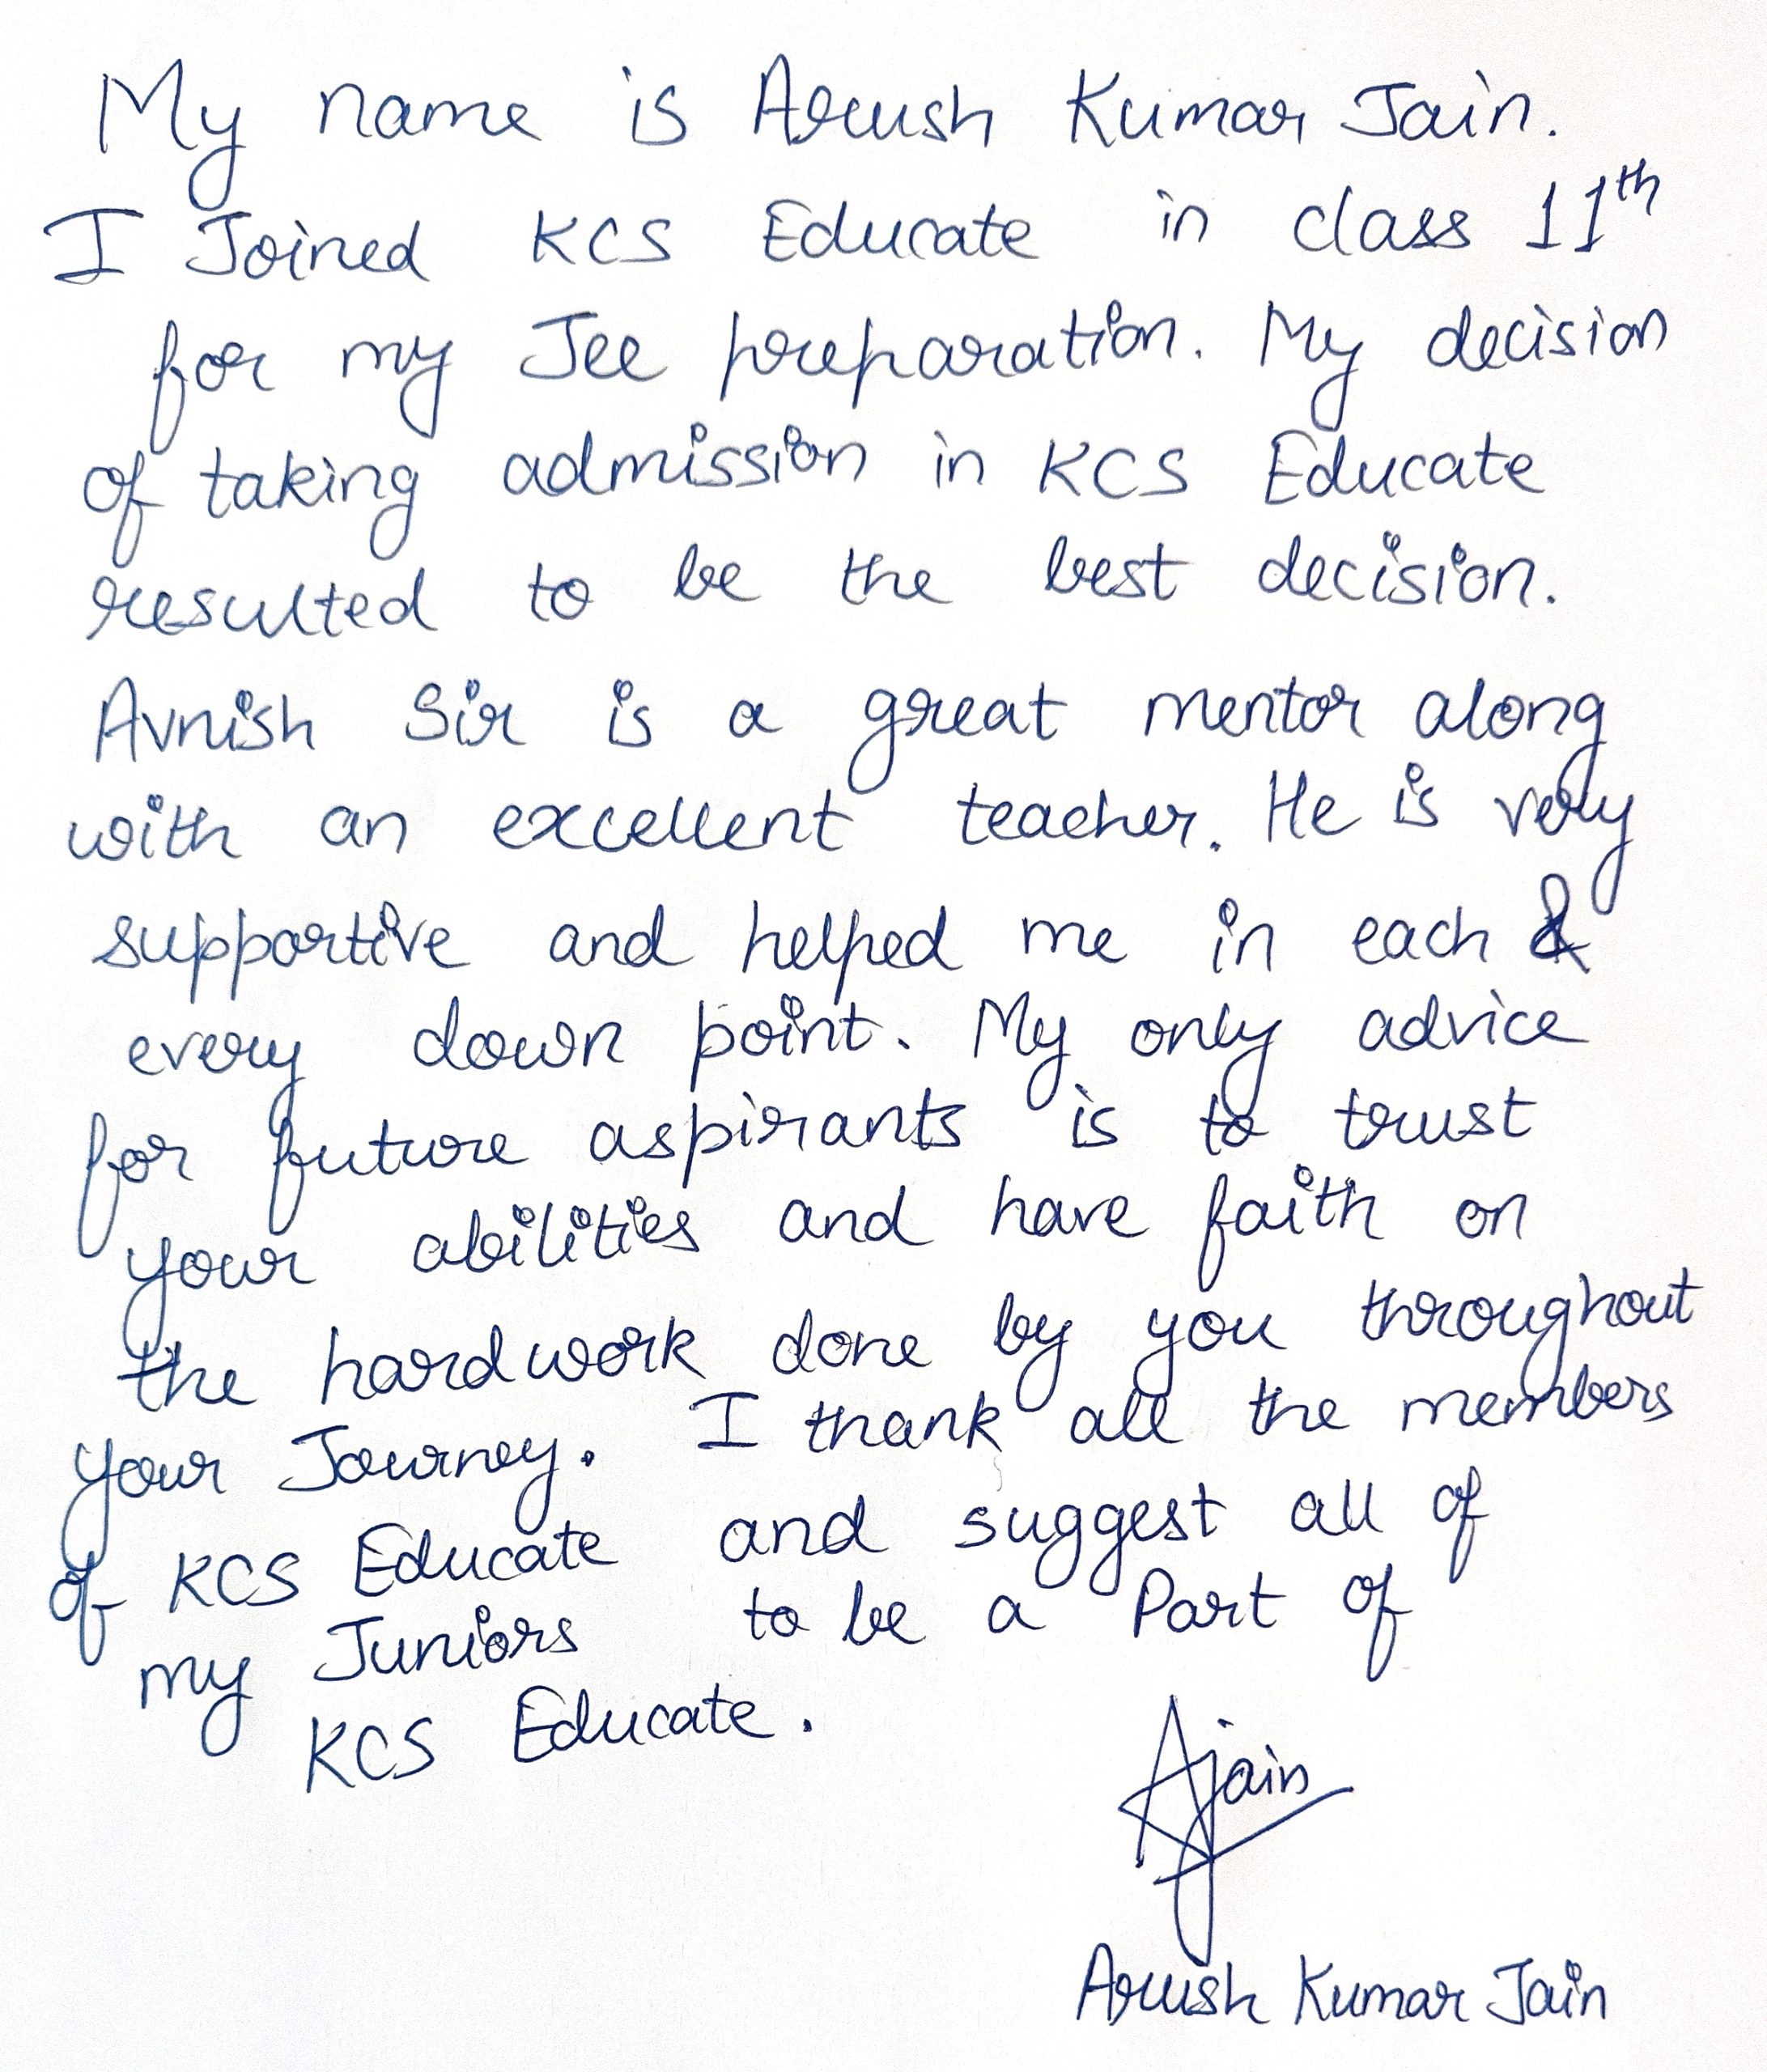 My name is Arush Kumar Jain.
I Joined KCS Educate in class 11th
for my Jee preparation. My decision
of taking admission in KCS Educate
resulted to be the best decision.
Avnish Sir is a great mentor along
with an excellent teacher. He is very
supportive and helped me in each &
every down point. My only advice
for future aspirants is to trust
your abilities and have faith on
the hardwork done by you throughout
your Journey. I thank all the members
of KCS Educate and suggest all of
my Juniors to be a Part of
KCS Educate.
Ajain
Arush Kumar Jain